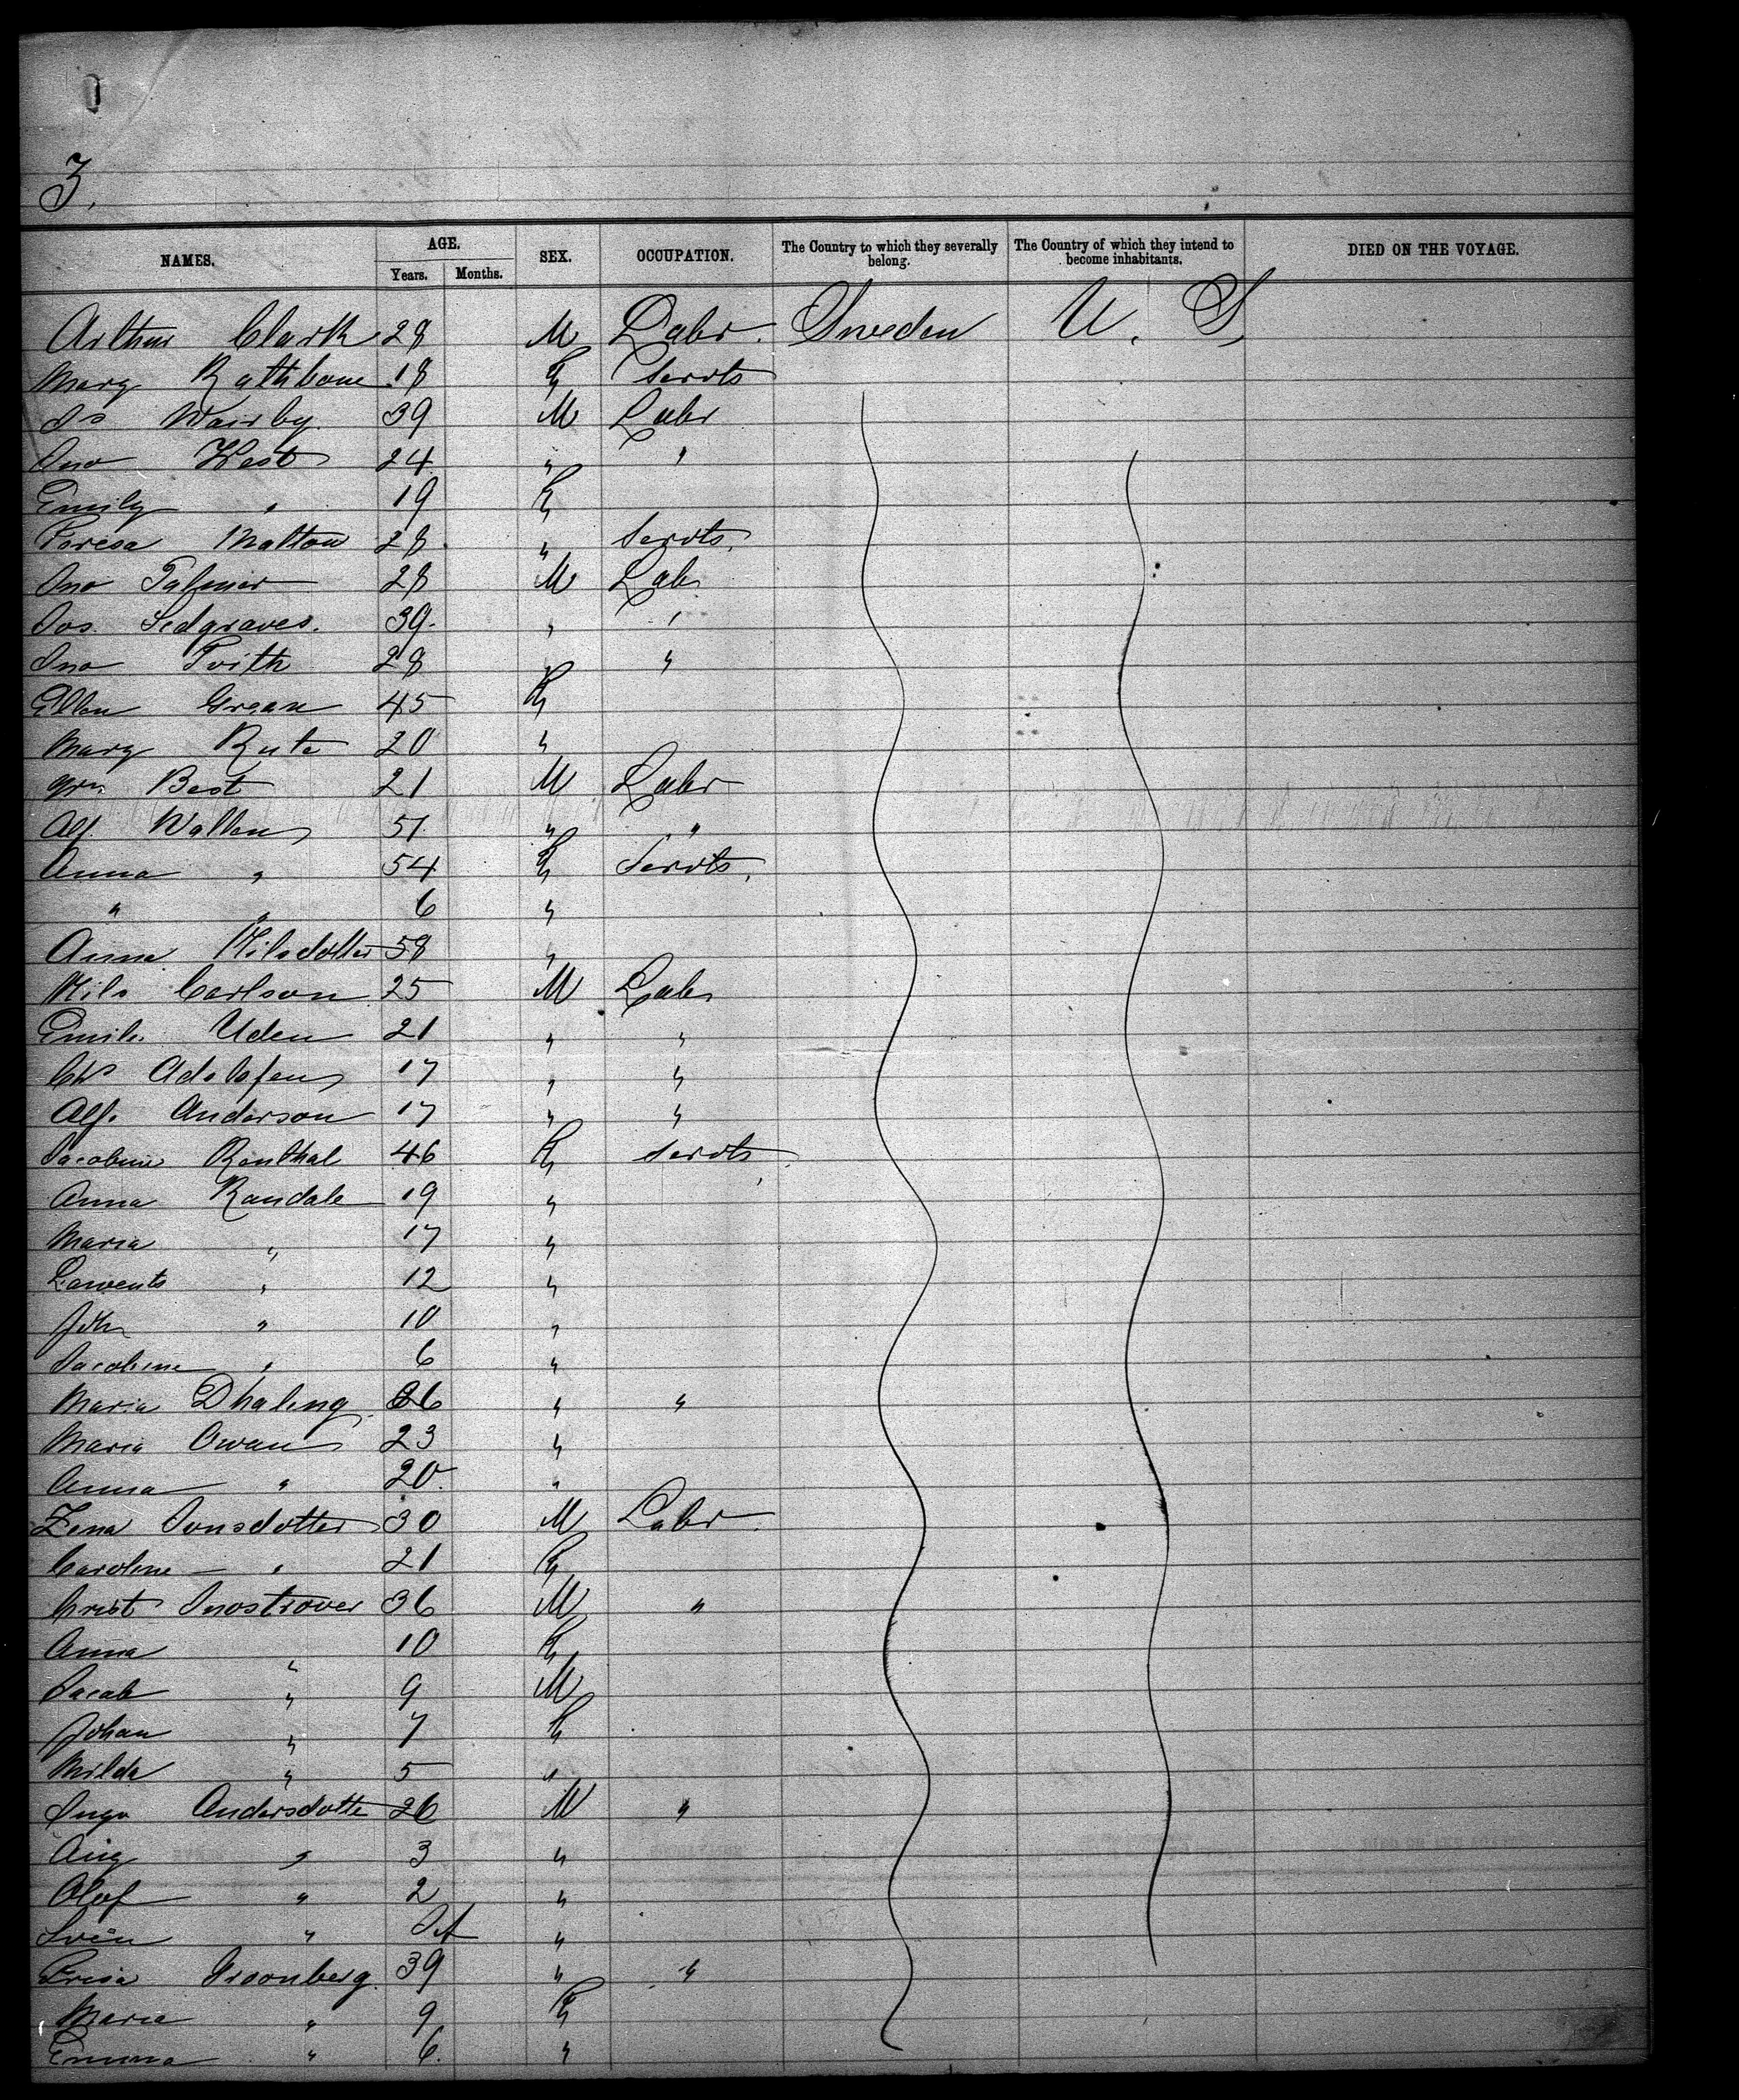 3.
NAMES. AGE. Years. Months. SEX. OCCUPATION. The Country to which they severally belong. The Country of which they intend to become inhabitants. DIED ON THE VOYAGE.
Arthur Clark 28 M Labr. Sweden U. S.
Mary Rathbone 18 F Servts
Js Wairby. 39 M Labr
Jno West 24 " "
Emily " 19 F
Teresa Malton 28 " Servts.
Jno Palmer 28 M Lab
Jos. Sedgraves. 39 " "
Jno Frith 28 " "
Ellen Grean 45 F
Mary Rute 20 "
Wm Best 21 M Labr
Alf Wallen 51 " "
Anna " 54 F Servts.
" " 6 "
Anna Nilsdotter 58 "
Nils Carlson 25 M Lab
Emil. Uden 21 " "
Chs 17 " "
Alf. Anderson 17 " "
Jacobine Renthal 46 F Servts
Anna Randale 19 "
Maria " 17 "
Lawents " 12 "
Joh " 10 "
Jacobine " 6 "
Maria Dhaling 36 " "
Maria Owan 23 "
Anna " 20 "
Lena Jonsdotter 30 M Labr.
Caroline " 21 F
Christ 36 M "
Anna " 10 F
Jacob " 9 M
Johan " 7 F
Milda " 5 "
Inga Andersdotte 26 M "
Aug " 3 "
Olof " 2 "
Svën " "
Groonberg. 39 " "
Maria " 9 F
Emma " 6. "